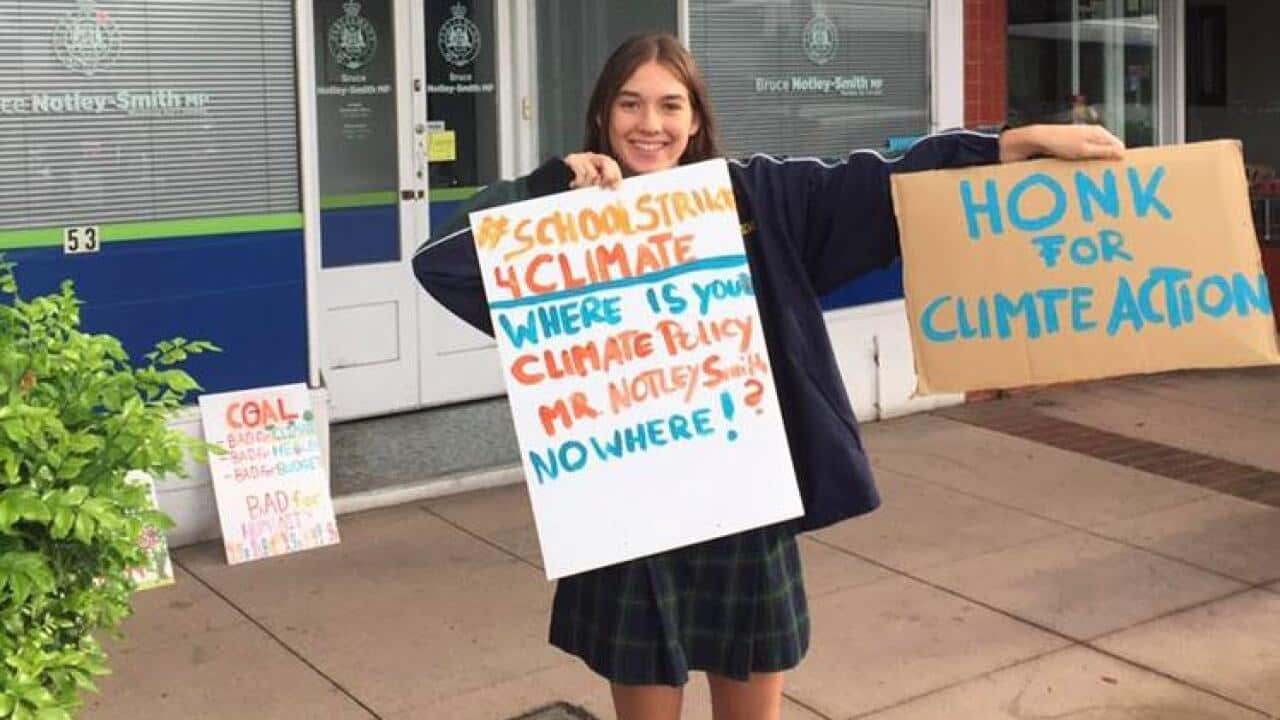 ce Notley-Smith MP
Bruce
Notley-Smith MP
Bruce
Notley-Smith MP
Bruce Notley-Smith MP
53
#SCHOOLSTRIKE
4CLIMATE
WHERE IS YOUR
CLIMATE POLICY
MR NOTLEY SMITH?
NOWHERE!
HONK
FOR
CLIMTE ACTION
COAL
-BAD for CLIMATE
-BAD for HEALTH
-BAD for BUDGET
BAD for
HUMANITY